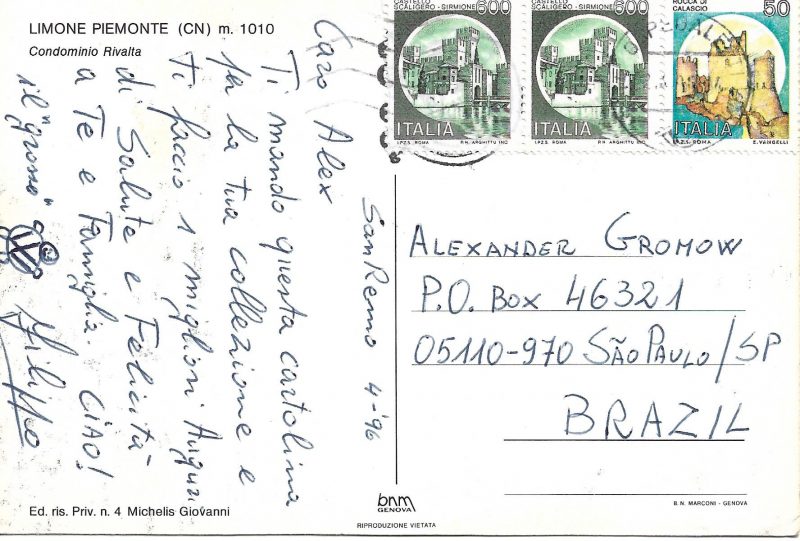 LIMONE PIEMONTE (CN) m. 1010
Condominio Rivalta
SanRemo 4-'96
Caro Alex
Ti mando questa cartolina
per la tua collezione e
ti faccio i migliori Auguri
di Salute e Felicità
a Te e Famiglia. CIAO!
il "grosso"
Filippo
Ed. ris. Priv. n. 4 Michelis Giovanni
bnm
GENOVA
RIPRODUZIONE VIETATA
CASTELLO
SCALIGERO - SIRMIONE
600
ITALIA
I.P.Z.S. ROMA P.N. ARGHITTU INC
CASTELLO
SCALIGERO - SIRMIONE
600
ITALIA
I.P.Z.S. ROMA P.N. ARGHITTU INC
ROCCA DI
CALASCIO
50
ITALIA
I.P.Z.S. ROMA E. VANGELLI
ALEXANDER GROMOW
P.O. BOX 46321
05110-970 SÃO PAULO/SP
BRAZIL
B.N. MARCONI - GENOVA